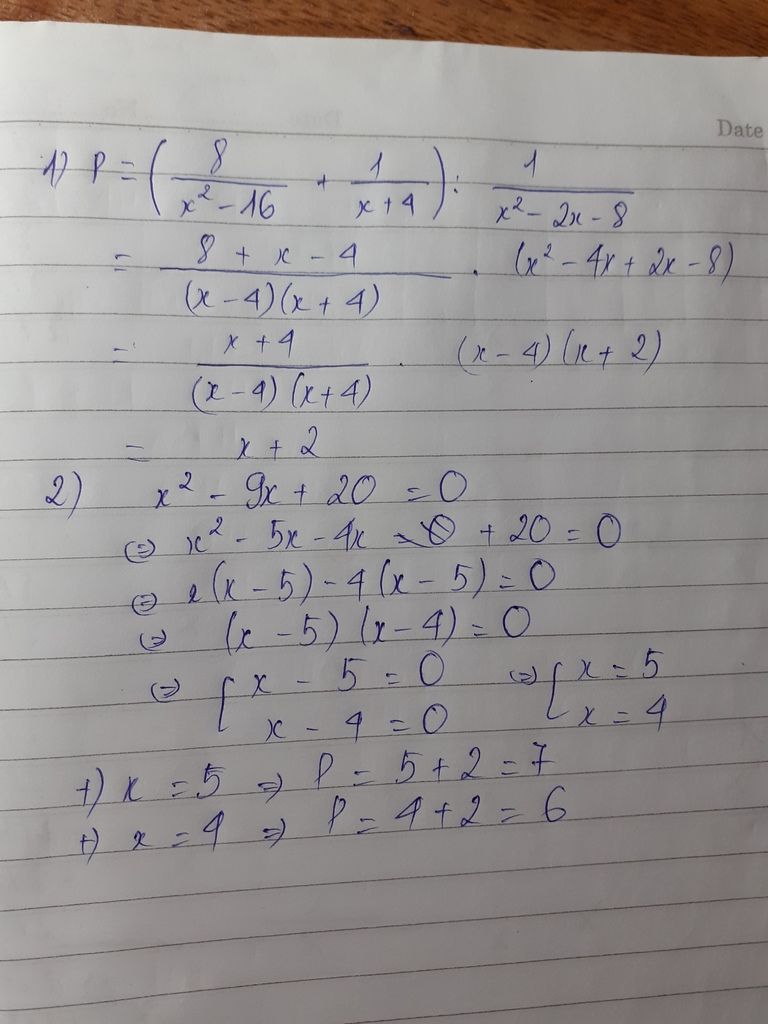 Date
1) P = ( 8/(x² - 16) + 1/(x + 4) ) : 1/(x² - 2x - 8)
= (8 + x - 4)/((x - 4)(x + 4)) . (x² - 4x + 2x - 8)
= (x + 4)/((x - 4)(x + 4)) . (x - 4)(x + 2)
= x + 2
2) x² - 9x + 20 = 0
⇔ x² - 5x - 4x + 20 = 0
⇔ x(x - 5) - 4(x - 5) = 0
⇔ (x - 5)(x - 4) = 0
⇔ [ x - 5 = 0 ⇔ [ x = 5
x - 4 = 0 x = 4
+) x = 5 ⇒ P = 5 + 2 = 7
+) x = 4 ⇒ P = 4 + 2 = 6